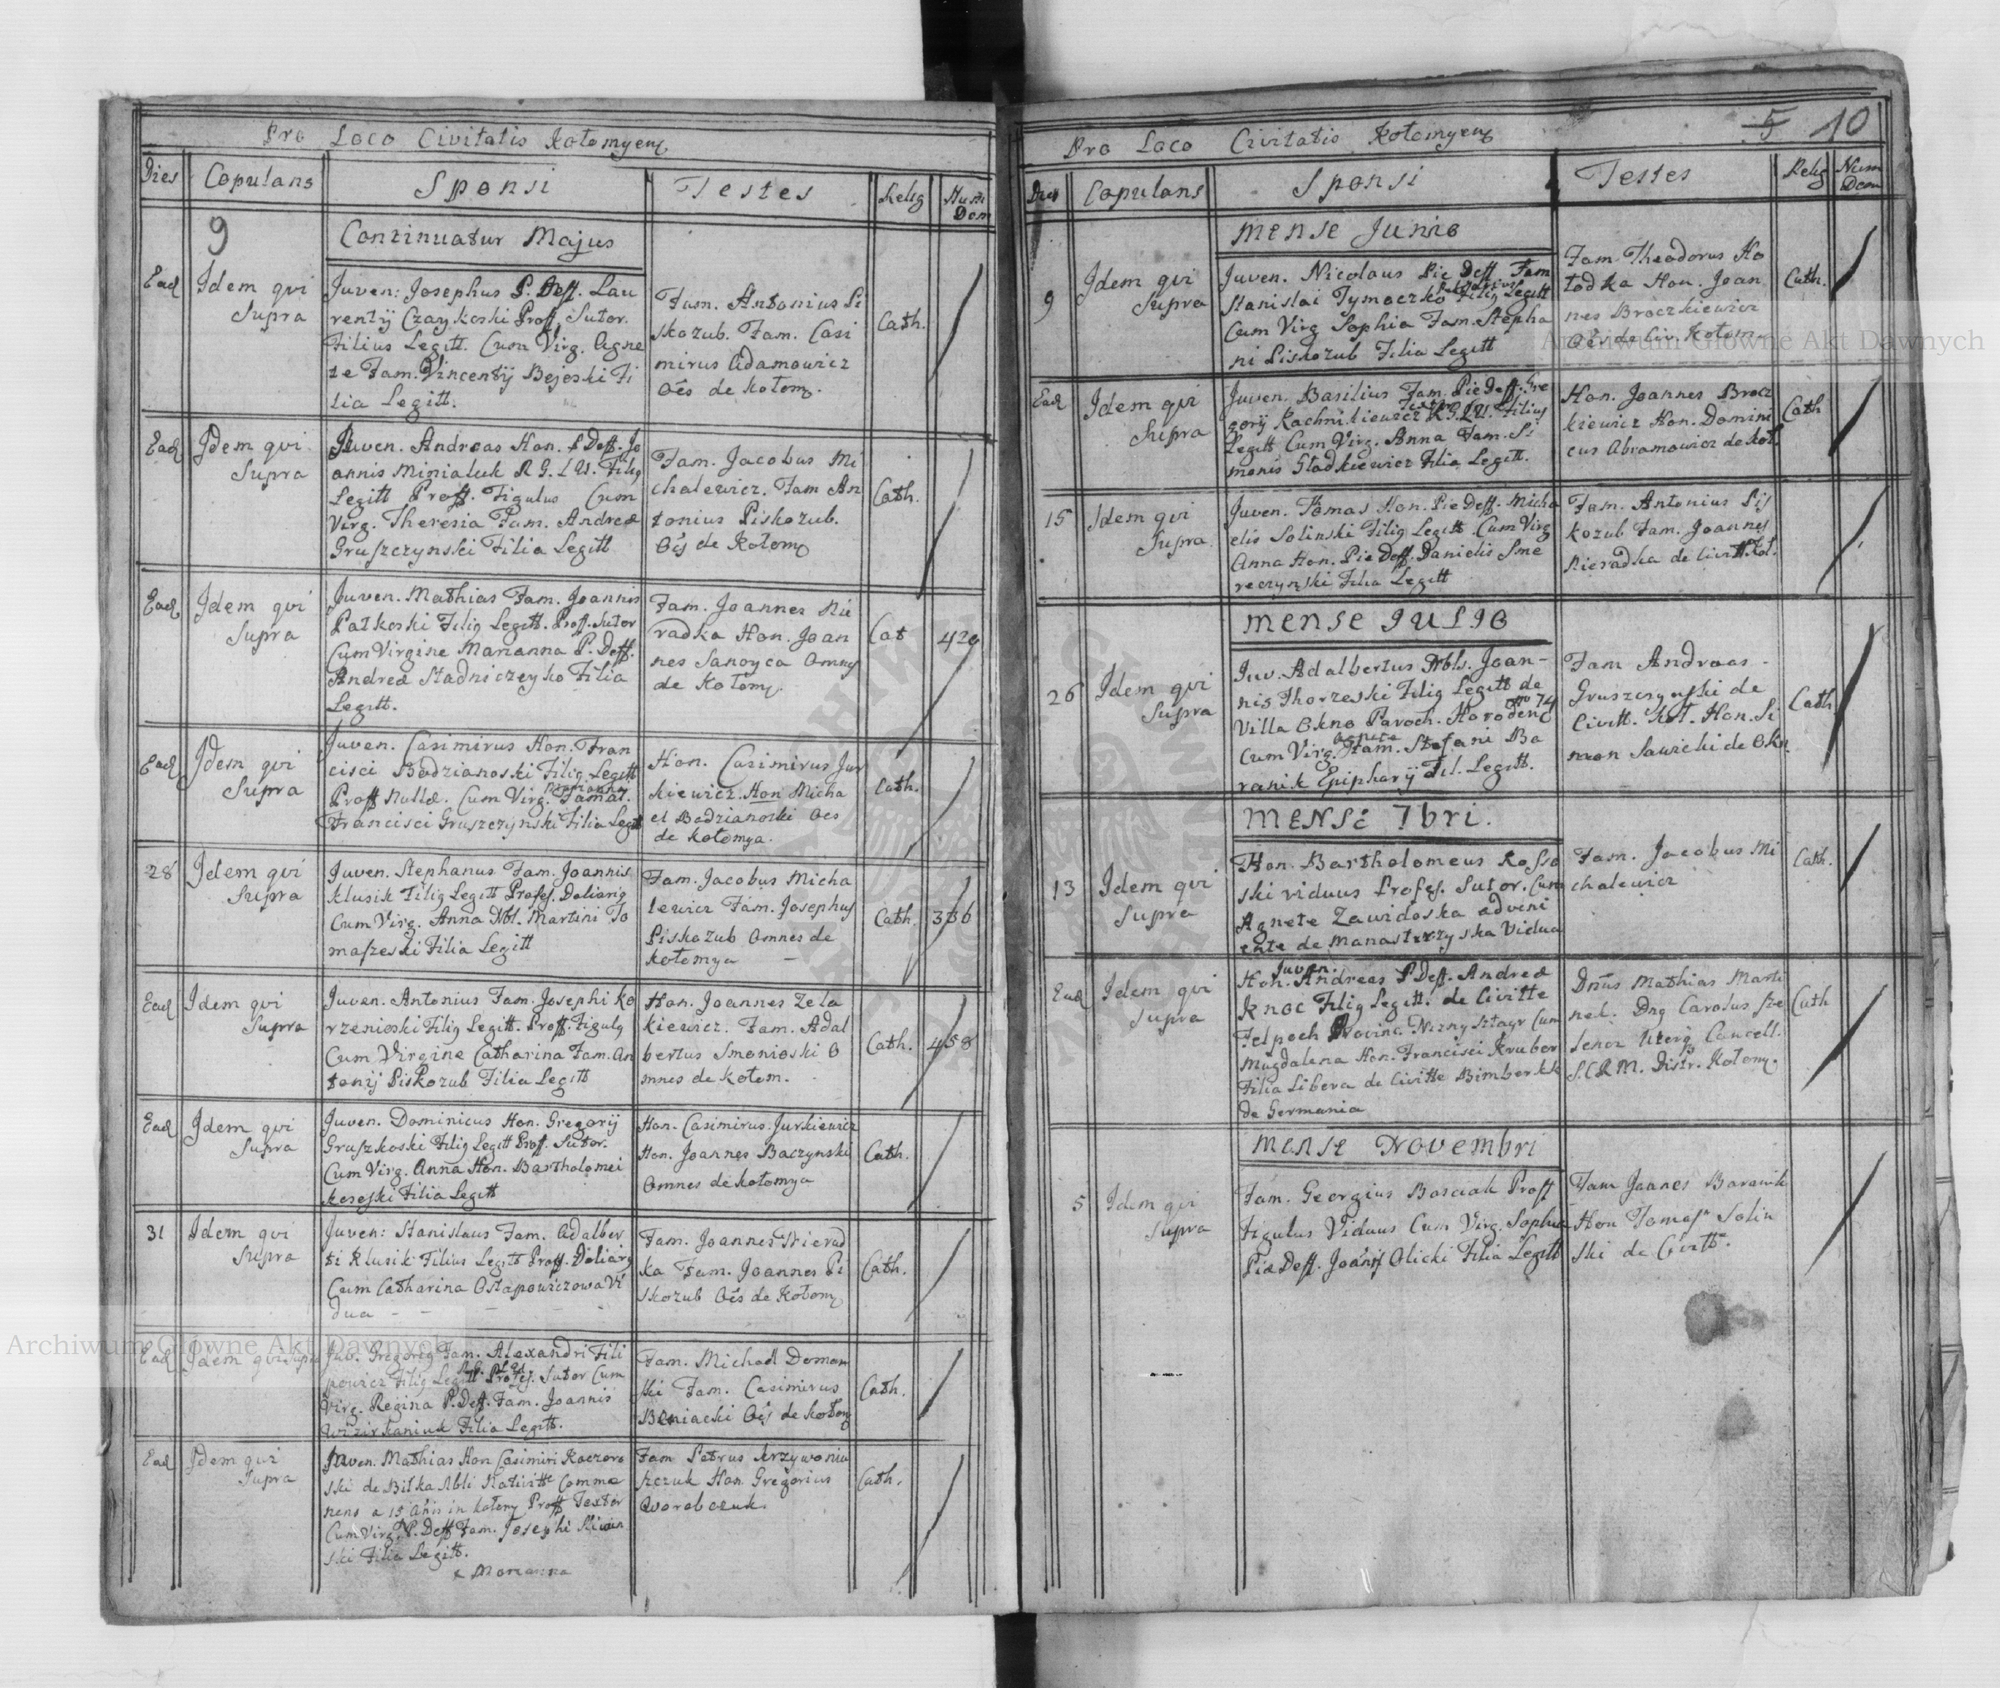 Pro Loco Civitatis Kołomyen
Dies Copulans Sponsi Testes Relig Num Dom
9
Continuatur Majus
Ead Idem qui Supra
Juven: Josephus P. Deff. Lau
rentij Czaykoski Proff. Sutor.
Filius Legitt. Cum Virg. Agne
te Fam. Vincentij Bejoski Fi
lia Legitt.
Fam. Antonius Pi
skozub. Fam. Casi
mirus Adamowicz
Oes de Kołom.
Cath.
Ead Idem qui Supra
Juven. Andreas Hon. P Deff. Jo
annis Minialuk R G. L U. Filig
Legitt Proff. Figulus Cum
Virg. Theresia Fam. Andreæ
Gruszczynski Filia Legitt
Fam. Jacobus Mi
chalewicz. Fam An
tonius Piskozub.
Oes de Kołom
Cath.
Ead Idem qui Supra
Juven. Mathias Fam. Joannis
Patkoski Filig Legitt. Proff. Sutor
Cum Virgine Marianna P. Deff.
Andreæ Stadniczeyko Filia
Legitt.
Fam. Joannes Nie
radka Hon. Joan
nes Sanoyca Omnes
de Kołom.
Cat
420
Ead Idem qui Supra
Juven. Casimirus Hon. Fran
cisci Bedzianoski Filig Legitt
Proff Nullæ. Cum Virg. Famat.
Francisci Gruszczynski Filia Legitt
Hon. Casimirus Jur
kiewicz. Hon Micha
el Bedzianoski Oes
de Kołomya.
Cath.
28 Idem qui Supra
Juven. Stephanus Fam. Joannis
Klusik Filig Legitt Profes. Doliarig
Cum Virg. Anna Nbl. Martini To
maszeski Filia Legitt
Fam. Jacobus Micha
lewicz Fam. Josephus
Piskozub Omnes de
Kołomya
Cath.
336
Ead Idem qui Supra
Juven. Antonius Fam. Josephi Ko
rzenioski Filig Legitt. Proff. Figulg
Cum Virgine Catharina Fam. An
tonij Piskozub Filia Legitt
Hon. Joannes Zela
kiewicz. Fam. Adal
bertus Smonioski O
mnes de Kołom.
Cath.
458
Ead Idem qui Supra
Juven. Dominicus Hon. Gregorij
Gruszkoski Filig Legitt Prof. Sutor.
Cum Virg. Anna Hon. Bartholomei
Filia Legitt
Hon. Casimirus Jurkiewicz
Hon. Joannes Baczynski
Omnes de Kołomya
Cath.
31 Idem qui Supra
Juven: Stanislaus Fam. Adalber
ti Klusik Filius Legitt Proff. Doliarg
Cum Catharina Ostapowiczowa Vi
dua
Fam. Joannes Nierad
ka Fam. Joannes Pi
skozub Oes de Kołom
Cath.
Ead Idem qui Supra
Juv. Gregorig Fam. Alexandri Fili
powicz Filig Legitt Profes. Sutor Cum
Virg. Regina P. Deff. Fam. Joannis
Filia Legitt.
Fam. Michael Doman
ski Fam. Casimirus
Beniacki Oes de Kołom
Cath.
Ead Idem qui Supra
Juven. Mathias Hon Casimiri Kaczoro
ski de Bilka Nativitte Comme
nens a 15 Anis in Kołomy Proff Textor
Cum Virg. P. Deff Fam. Josephi
ski Filia Legitt.
x Marianna
Fam Petrus Krzywonia
szczuk Hon Gregorius
Worobczuk
Cath.
Pro Loco Civitatis Kołomyen
5 10
Dies Copulans Sponsi Testes Relig Num Dom
Mense Junio
9 Idem qui Supra
Juven. Nicolaus Pie Deff. Fam
Stanislai Tymoczko Filig Legitt
Cum Virg Sophia Fam. Stepha
ni Piskozub Filia Legitt
Fam. Theodorus Ho
łodka Hon. Joan
nes Broczkiewicz
Oes de Civ. Kołom
Cath.
Ead Idem qui Supra
Juven. Basilius Fam. Pie Deff. Gre
gorij Rachnikiewicz Textor R G. L U. Filius
Legitt Cum Virg. Anna Fam. Si
monis Gladkiewicz Filia Legitt.
Hon. Joannes Brocz
kiewicz Hon. Domini
cus Abramowicz de Koł
Cath
15 Idem qui Supra
Juven. Tomas Hon. Pie Deff. Micha
elis Solinski Filig Legitt Cum Virg
Anna Hon. Pie Deff. Danielis Sme
reczynski Filia Legitt
Fam. Antonius Pis
kozub Fam. Joannes
Nieradka de Civitt. Koł.
Mense Julio
26 Idem qui Supra
Juv. Adalbertus Nbls. Joan-
nis Thorzeski Filig Legitt de
Villa Okno Paroch. Horodenc No 74
Cum Virg. Agnete Fam. Stefani Ba
ranik Epipharij Fil. Legitt.
Fam Andreas
Gruszczynski de
Civitt. Koł. Hon. Si
mon Sawicki de Okn
Cath
Mense 7bri.
13 Idem qui Supra
Hon. Bartholomeus Rosso
ski viduus Profes. Sutor. Cum
Agnete Zawidoska adveni
ente de Manastrzyska Vidua
Fam. Jacobus Mi
chalewicz
Cath.
Ead Idem qui Supra
Juven.
Hon. Andreas P Deff. Andreæ
Knoc Filig Legitt. de Civitte
Felpoch Provinc. Cum
Magdalena Hon. Francisci Kruber
Filia Libera de Civitte Bimberkk
de Germania
Dnus Mathias Marti
nel. Dng Carolus Sze
Cancell.
S.C.R.M. Distr. Kołomy.
Cath
Mense Novembri
5 Idem qui Supra
Fam. Georgius Bosciak Proff
Figulus Viduus Cum Virg. Sophia
Piæ Deff. Joannis Olicki Filia Legitt
Fam Joanes Baranik
Hon Tomas Solin
ski de Civitte.
Archiwum Główne Akt Dawnych
Archiwum Główne Akt Dawnych